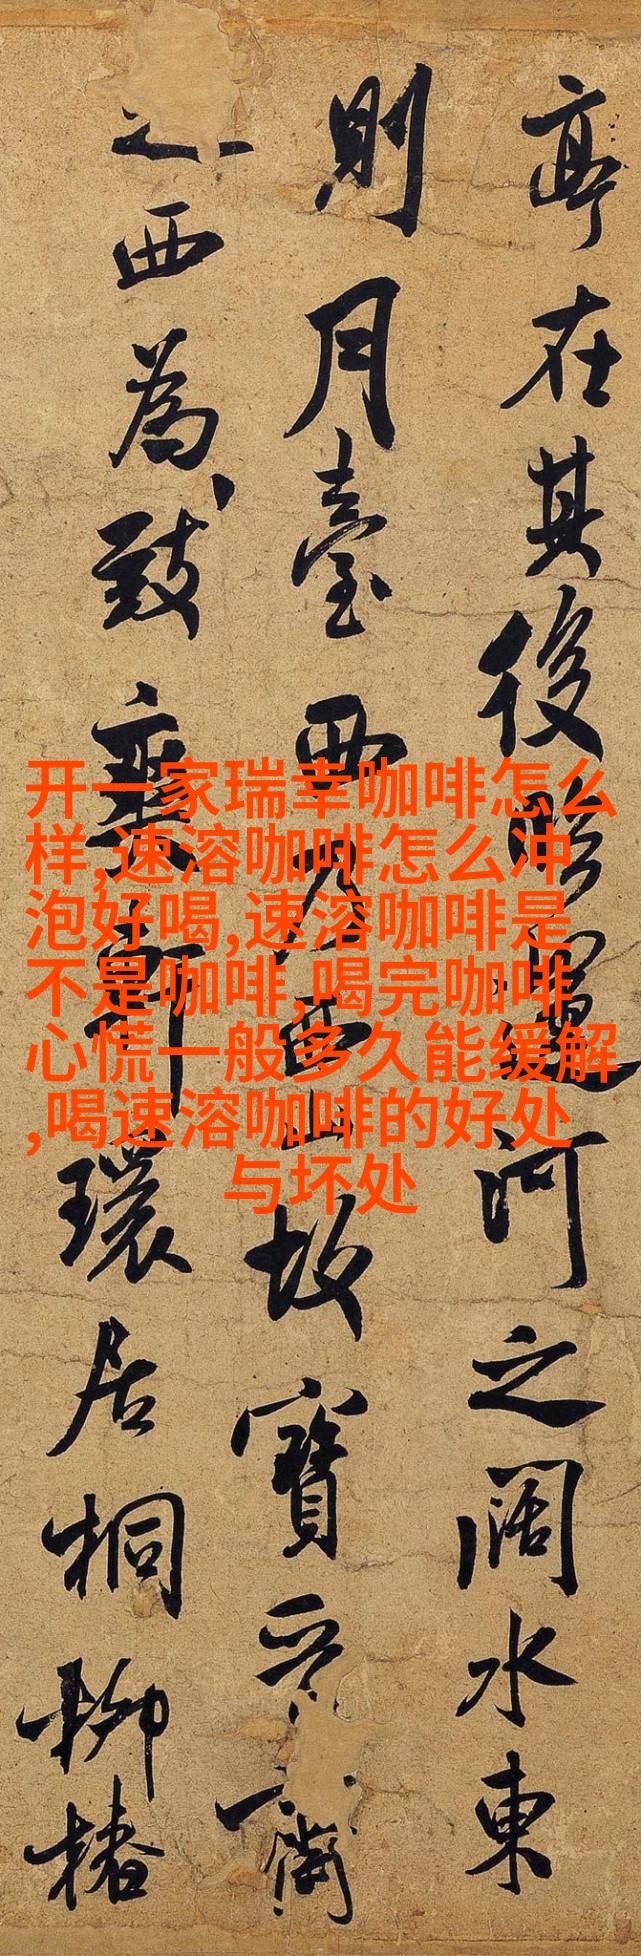 亭在其後臨運河之闊水東
則月臺西乃西山故寶晉齋
之西為致爽軒環居桐柳椿
开一家瑞幸咖啡怎么
样,速溶咖啡怎么冲
泡好喝,速溶咖啡是
不是咖啡,喝完咖啡
心慌一般多久能缓解
,喝速溶咖啡的好处
与坏处